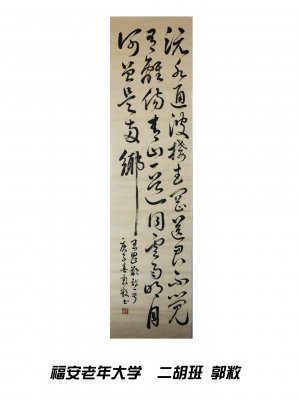 沅水通波接武岡送君不覺
有離傷青山一道同雲雨明月
何曾是兩鄉
王昌齡詩一首
庚子春郭敉书
福安老年大学 二胡班 郭敉